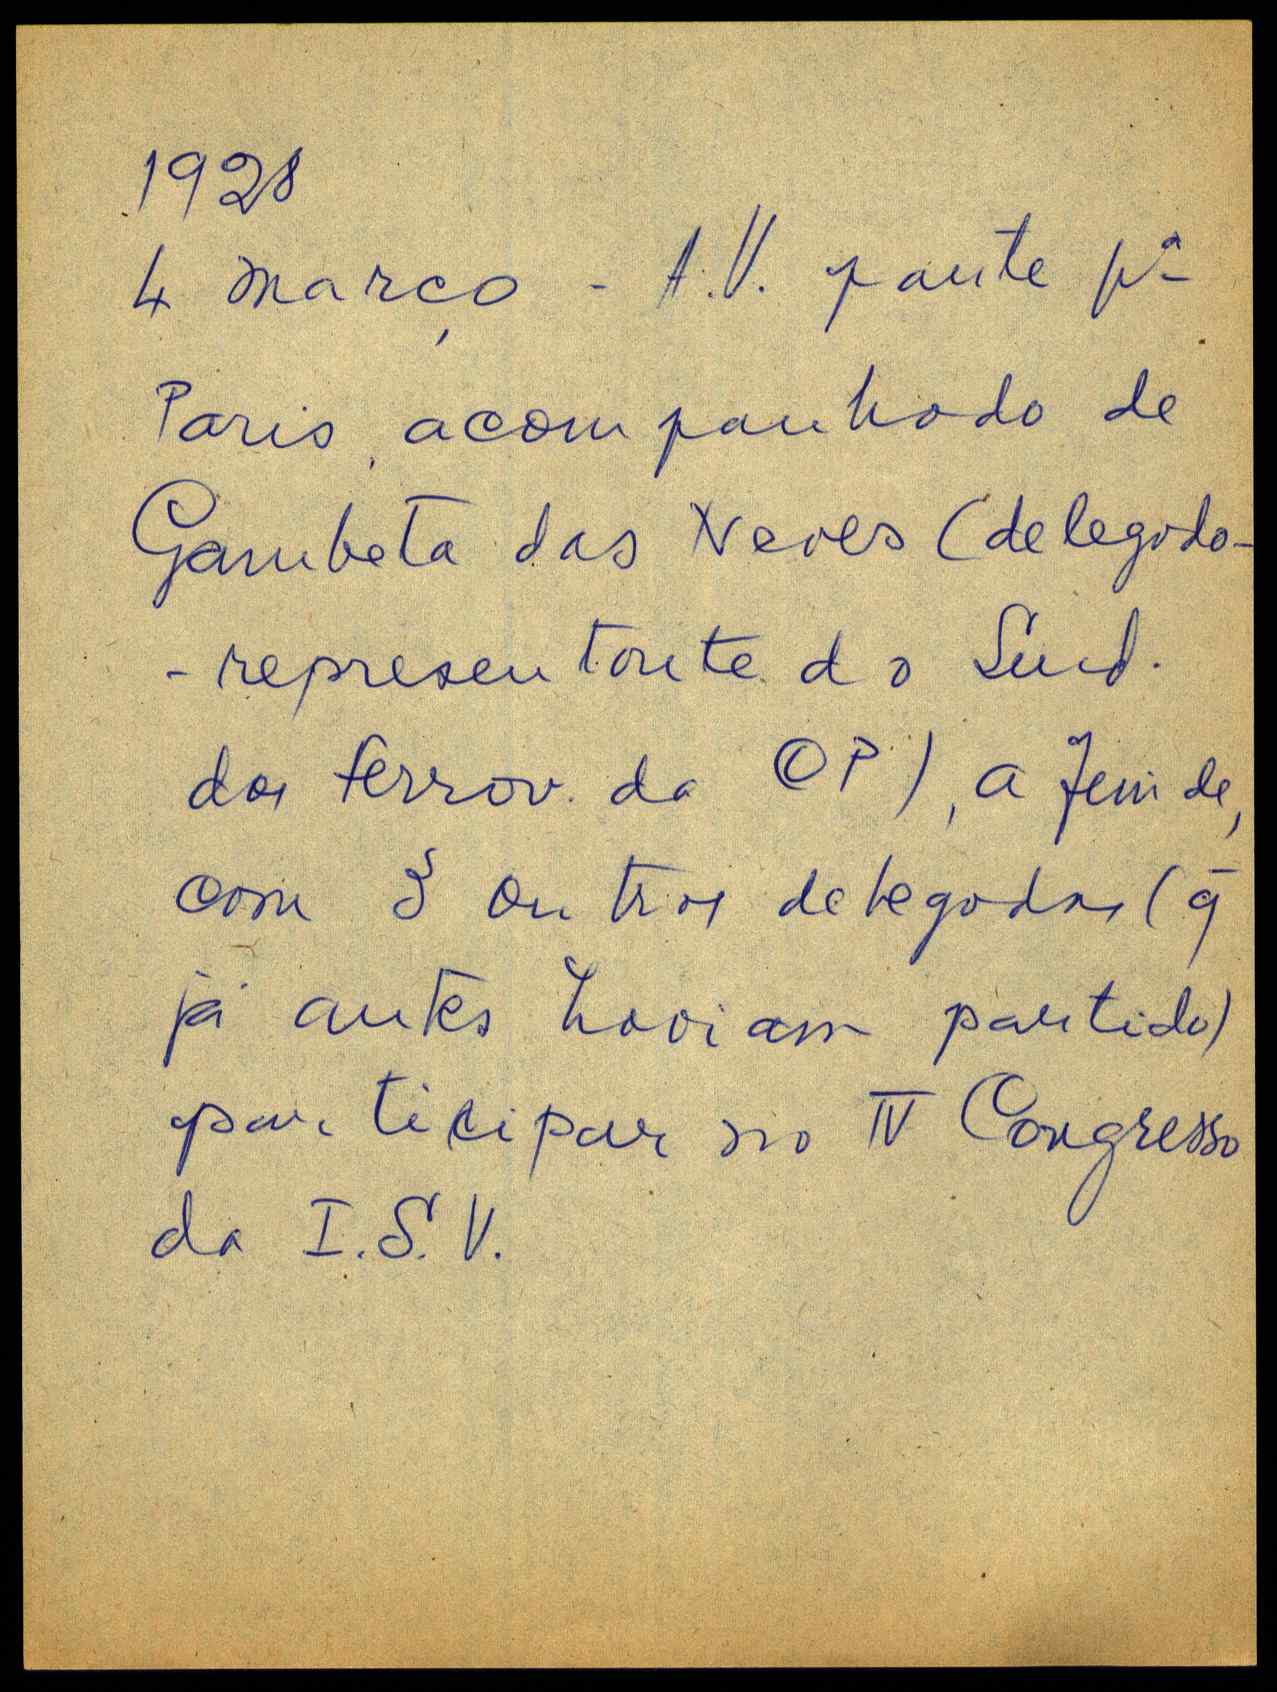 1928
4 março - A.V. parte pª
Paris, acompanhado de
Gambeta das Neves (delegado-
-representante do Sind.
dos ferrov. da CP), a fim de,
com 3 outros delegados (q̄
já antes haviam partido)
participar no IV Congresso
da I.S.V.